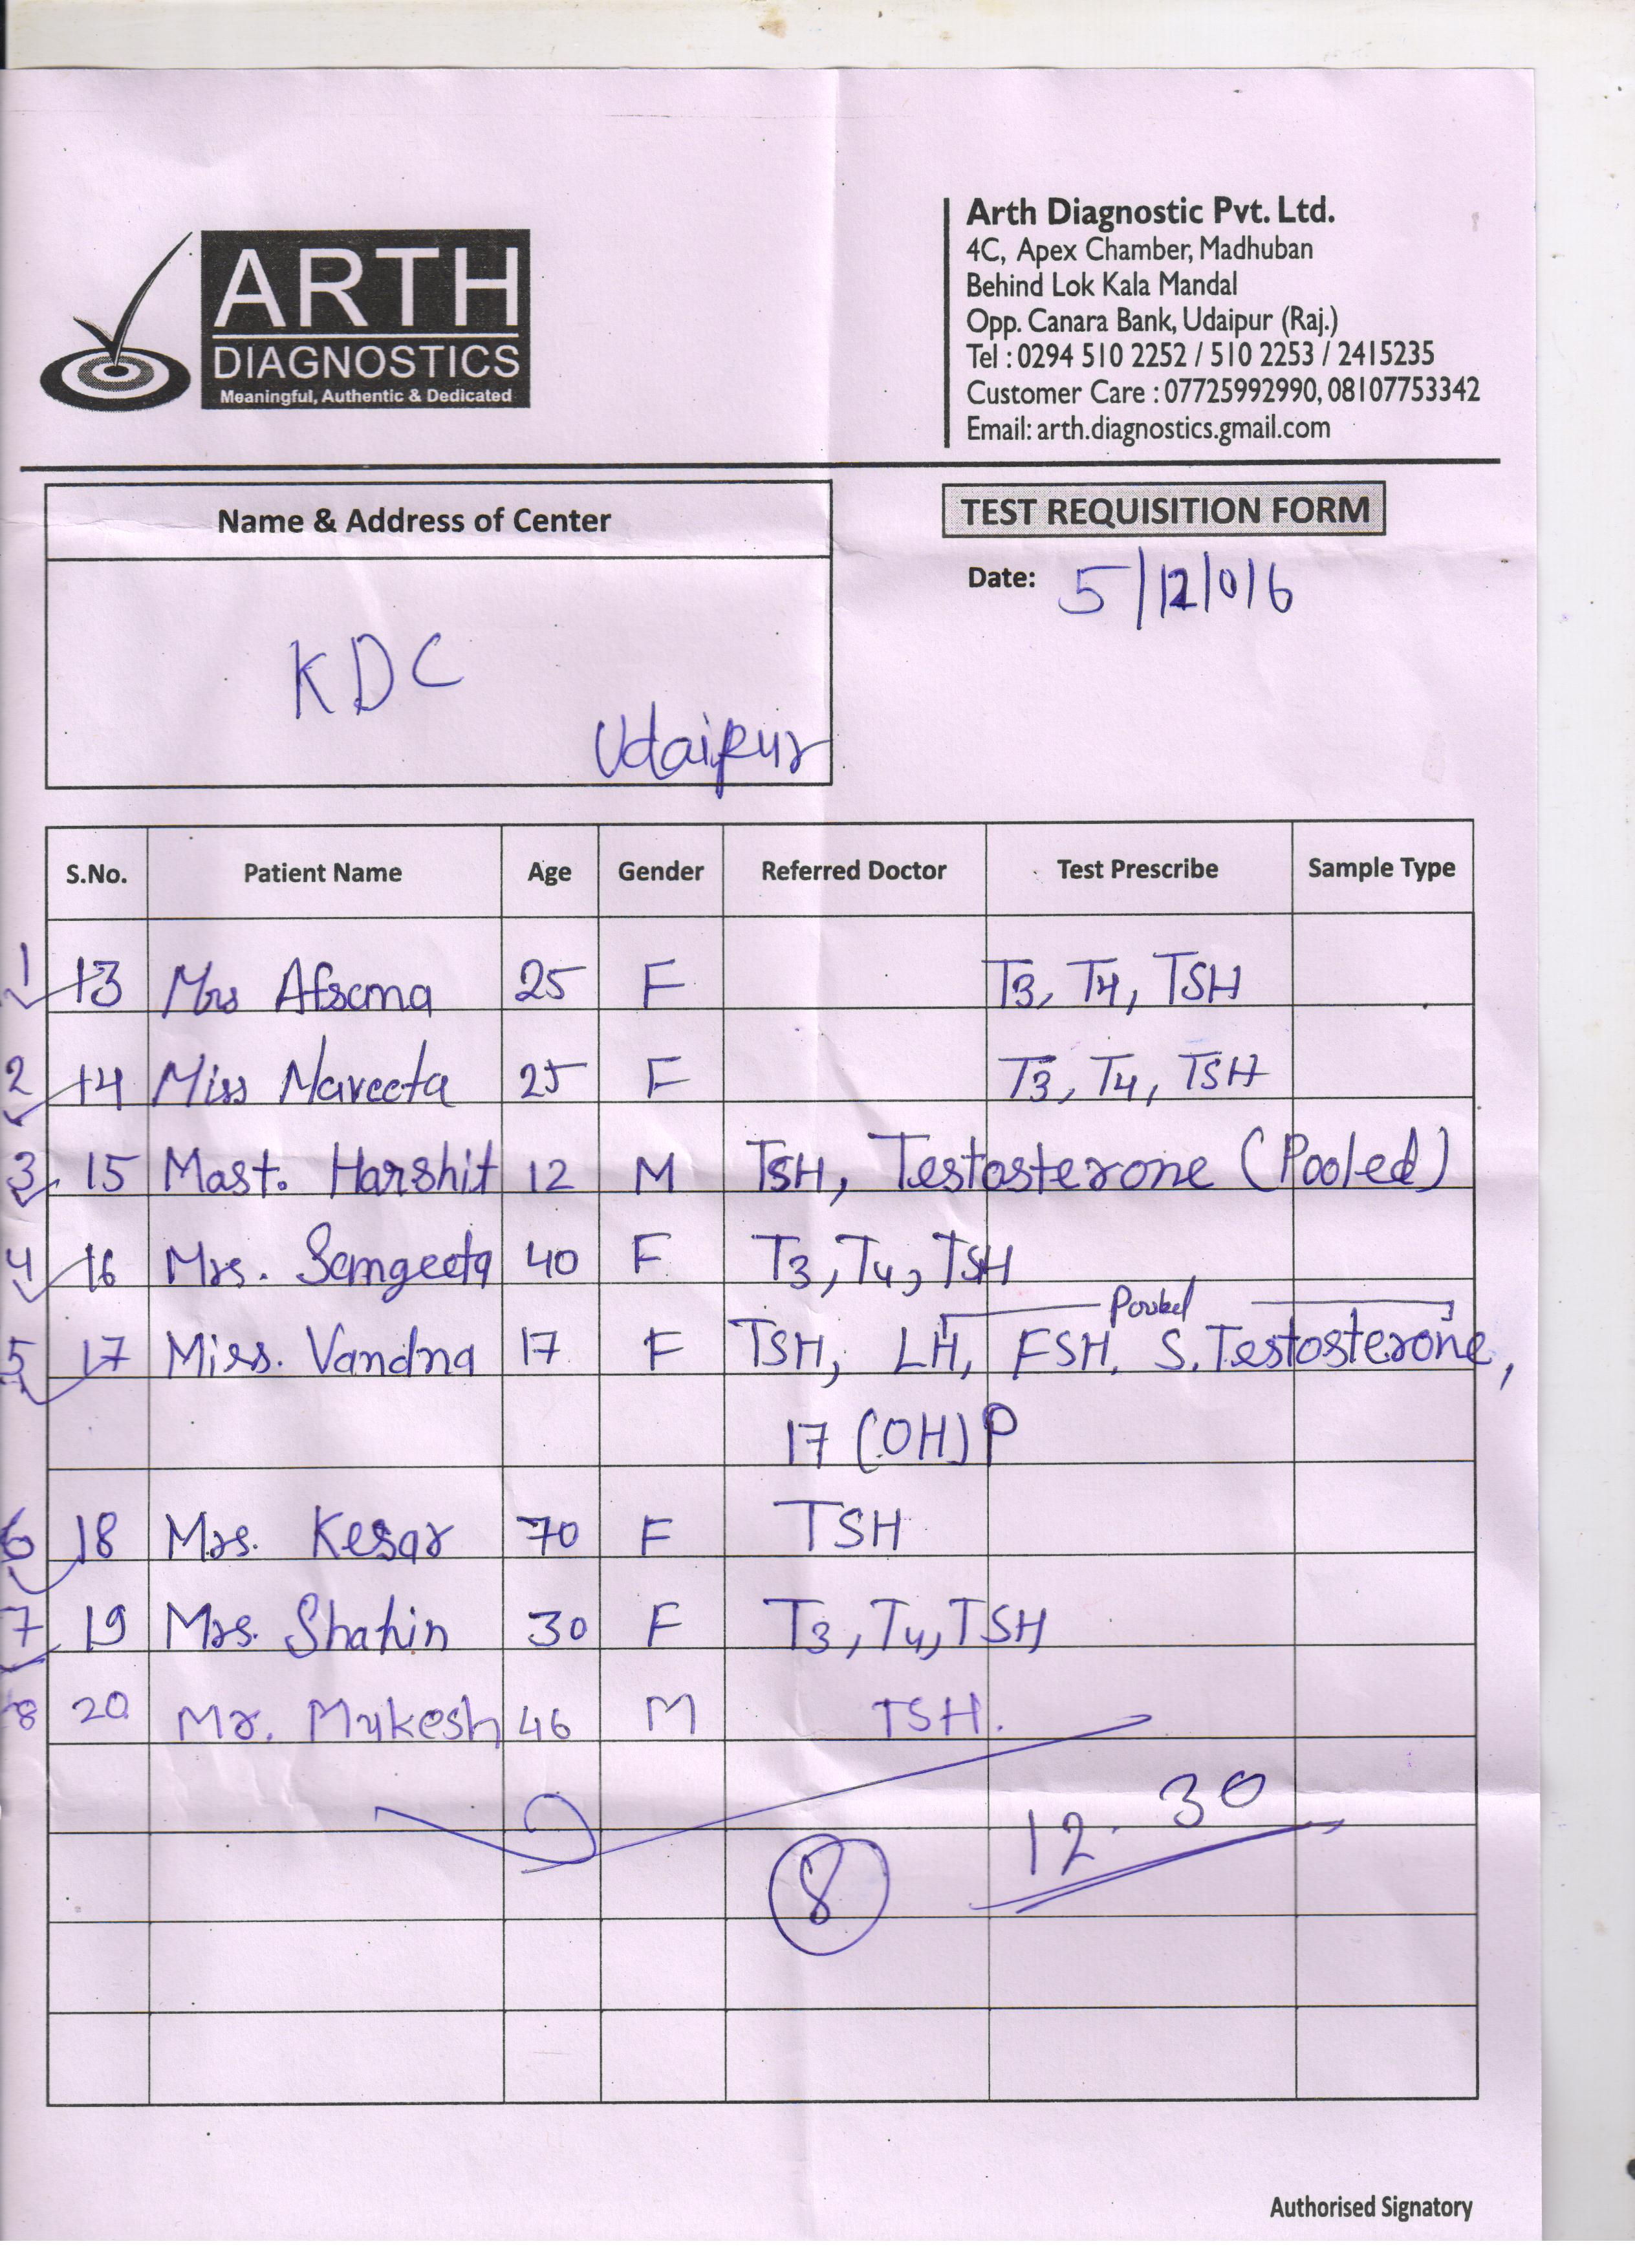 ARTH
DIAGNOSTICS
Meaningful, Authentic & Dedicated
Arth Diagnostic Pvt. Ltd.
4C, Apex Chamber, Madhuban
Behind Lok Kala Mandal
Opp. Canara Bank, Udaipur (Raj.)
Tel : 0294 510 2252 / 510 2253 / 2415235
Customer Care : 07725992990, 08107753342
Email: arth.diagnostics.gmail.com
Name & Address of Center
KDC
Udaipur
TEST REQUISITION FORM
Date: 5/12/016
S.No. Patient Name Age Gender Referred Doctor Test Prescribe Sample Type
1 13 Mrs 25 F T3, T4, TSH
2 14 Miss 25 F T3, T4, TSH
3 15 Mast. Harshit 12 M TSH, Testosterone (Pooled)
4 16 Mrs. Sangeeta 40 F T3, T4, TSH
Pooled
5 17 Miss. Vandna 17 F TSH, LH, FSH, S. Testosterone,
17 (OH) P
6 18 Mrs. Kesar 70 F TSH
7 19 Mrs. Shahin 30 F T3, T4, TSH
8 20 Mr. Mukesh 46 M TSH.
8
12. 30
Authorised Signatory